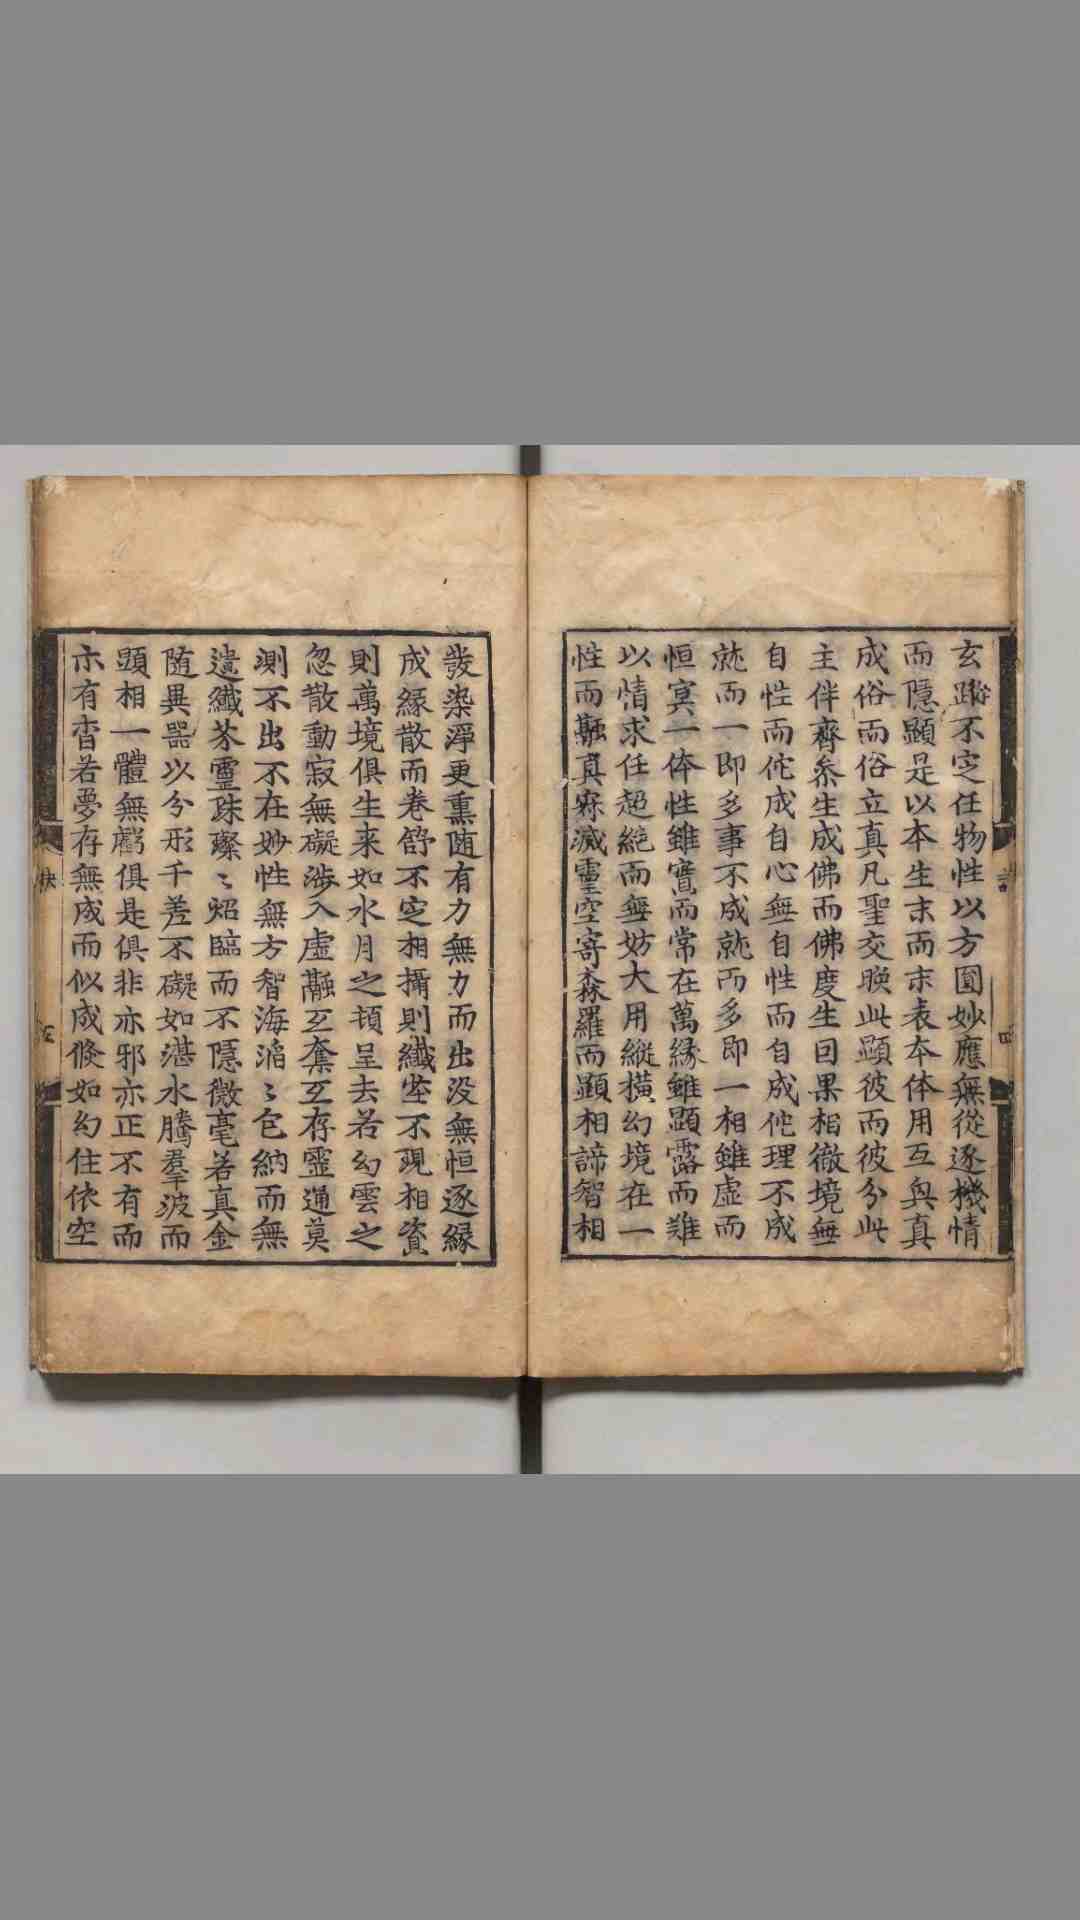 玄蹤不定任物性以方圓妙應無從逐機情
而隱顯是以本生末而末表本体用互興真
成俗而俗立真凡聖交暎此顯彼而彼分此
主伴齊叅生成佛而佛度生因果相徹境無
自性而佗成自心無自性而自成佗理不成
就而一即多事不成就而多即一相雖虛而
恒冥一体性雖實而常在萬緣雖顯露而難
以情求任超絕而無妨大用縱横幻境在一
性而融真寂滅靈空寄森羅而顯相諦智相
發染淨更熏随有力無力而出没無恒逐緣
成緣散而卷舒不定相攝則纖塵不現相資
則萬境俱生来如水月之頓呈去若幻雲之
忽散動寂無礙渉入虛融互奪互存靈通莫
測不出不在妙性無方智海滔〻包納而無
遺纖芥靈珠璨〻炤臨而不隱微毫若真金
随異噐以分形千差不礙如湛水騰羣波而
顕相一體無虧俱是俱非亦邪亦正不有而
亦有杳若夢存無成而似成倐如幻住依空